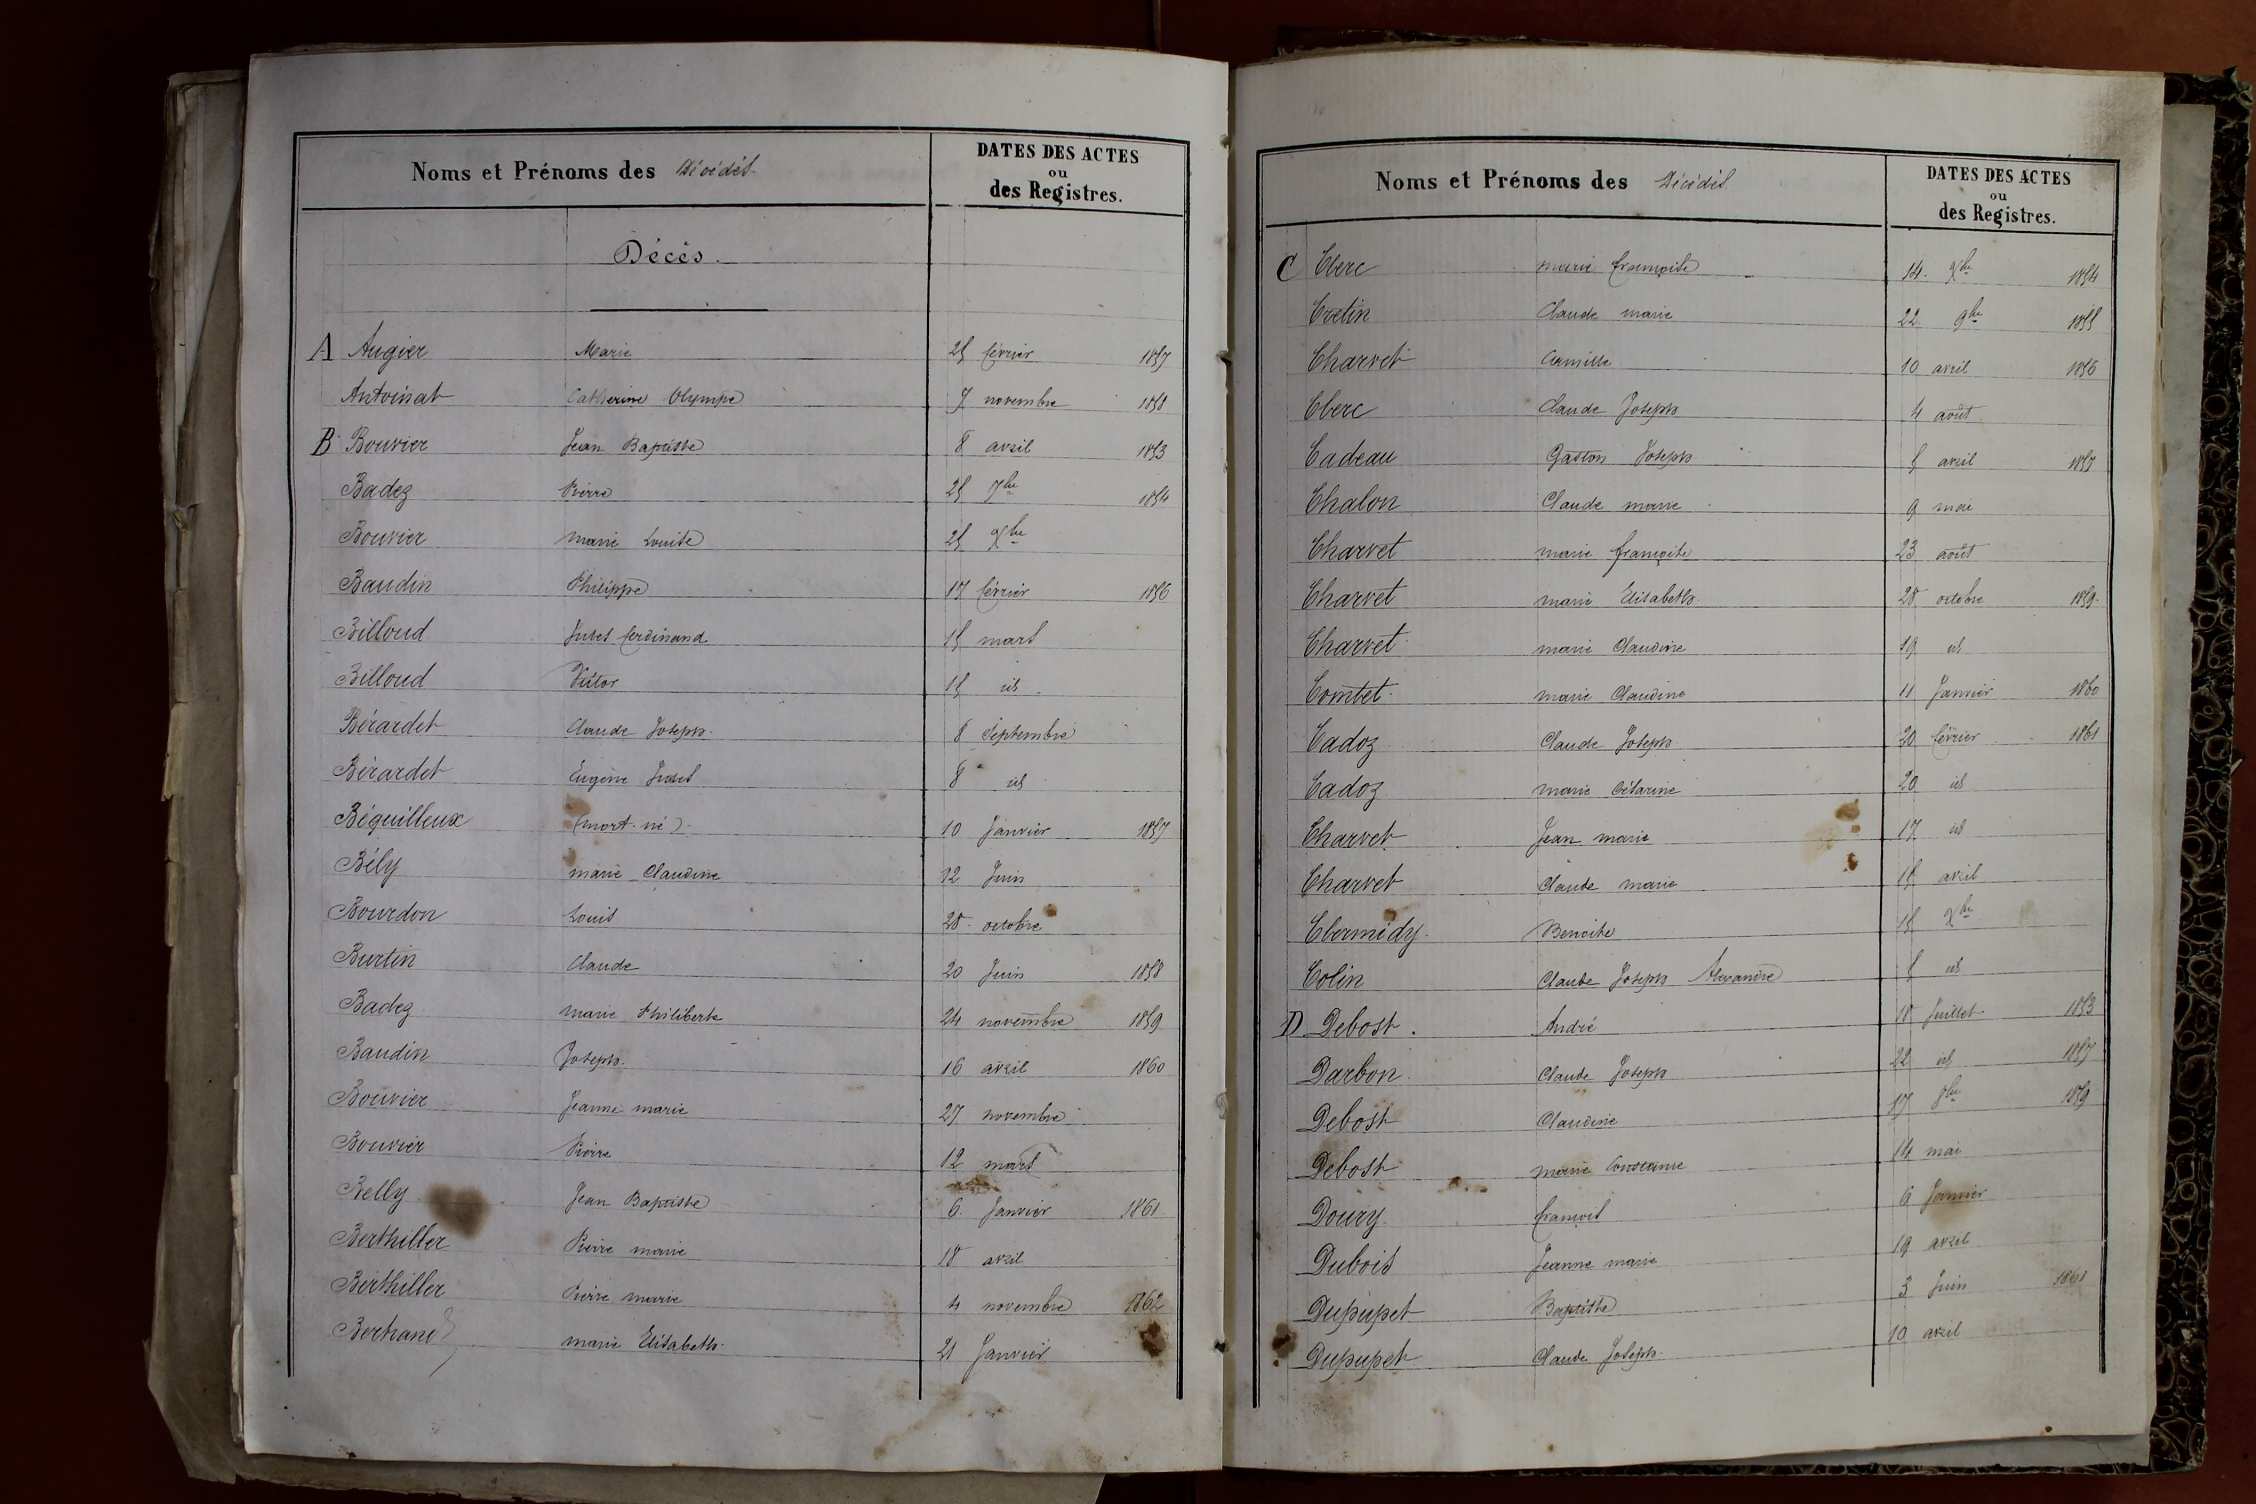 Noms et Prénoms des Décédés
DATES DES ACTES
ou
des Registres.
Décès.
A Augier Marie 25 février 1857
Antoinat Catherine Olympe 7 novembre 1858
B Bouvier Jean Baptiste 8 avril 1853
Badez Pierre 25 7bre 1854
Bouvier marie Louise 25 Xbre
Baudin Philippe 17 février 1856
Billoud Jules ferdinand 15 mars
Billoud Victor 15 id
Bérardet Claude Joseph 8 Septembre
Bérardet Eugène Jules 8 id
Béquilleux (mort-né) 10 Janvier 1857
Bély marie Claudine 12 Juin
Bourdon Louis 28 octobre
Burtin Claude 20 Juin 1858
Badez marie Philiberte 24 novembre 1859
Baudin Joseph 16 avril 1860
Bouvier Jeanne marie 27 novembre
Bouvier Pierre 12 mars
Belly Jean Baptiste 6 Janvier 1861
Berthiller Pierre marie 18 avril
Berthiller Pierre marie 4 novembre 1862
Bertrand marie Elisabeth 21 Janvier
Noms et Prénoms des Décédés
DATES DES ACTES
ou
des Registres.
C Clerc marie françoise 14 Xbre 1854
Cretin Claude marie 22 9bre 1855
Charvet Camille 10 avril 1856
Clerc Claude Joseph 4 août
Cadeau Gaston Joseph 5 avril 1857
Chalon Claude marie 9 mai
Charvet marie françoise 23 août
Charvet marie Elisabeth 28 octobre 1859
Charvet marie Claudine 19 id
Comtet marie Claudine 11 Janvier 1860
Cadoz Claude Joseph 20 février 1861
Cadoz marie Césarine 20 id
Charvet Jean marie 17 id
Charvet Claude marie 15 avril
Clermidy Benoite 15 Xbre
Colin Claude Joseph Alexandre 5 id
D Debost André 18 Juillet 1853
Darbon Claude Joseph 22 id 1857
Debost Claudine 17 8bre 1859
Debost marie Constance 14 mai
Doury françois 6 Janvier
Dubois Jeanne marie 19 avril
Dupupet Baptiste 3 Juin 1861
Dupupet Claude Joseph 10 avril